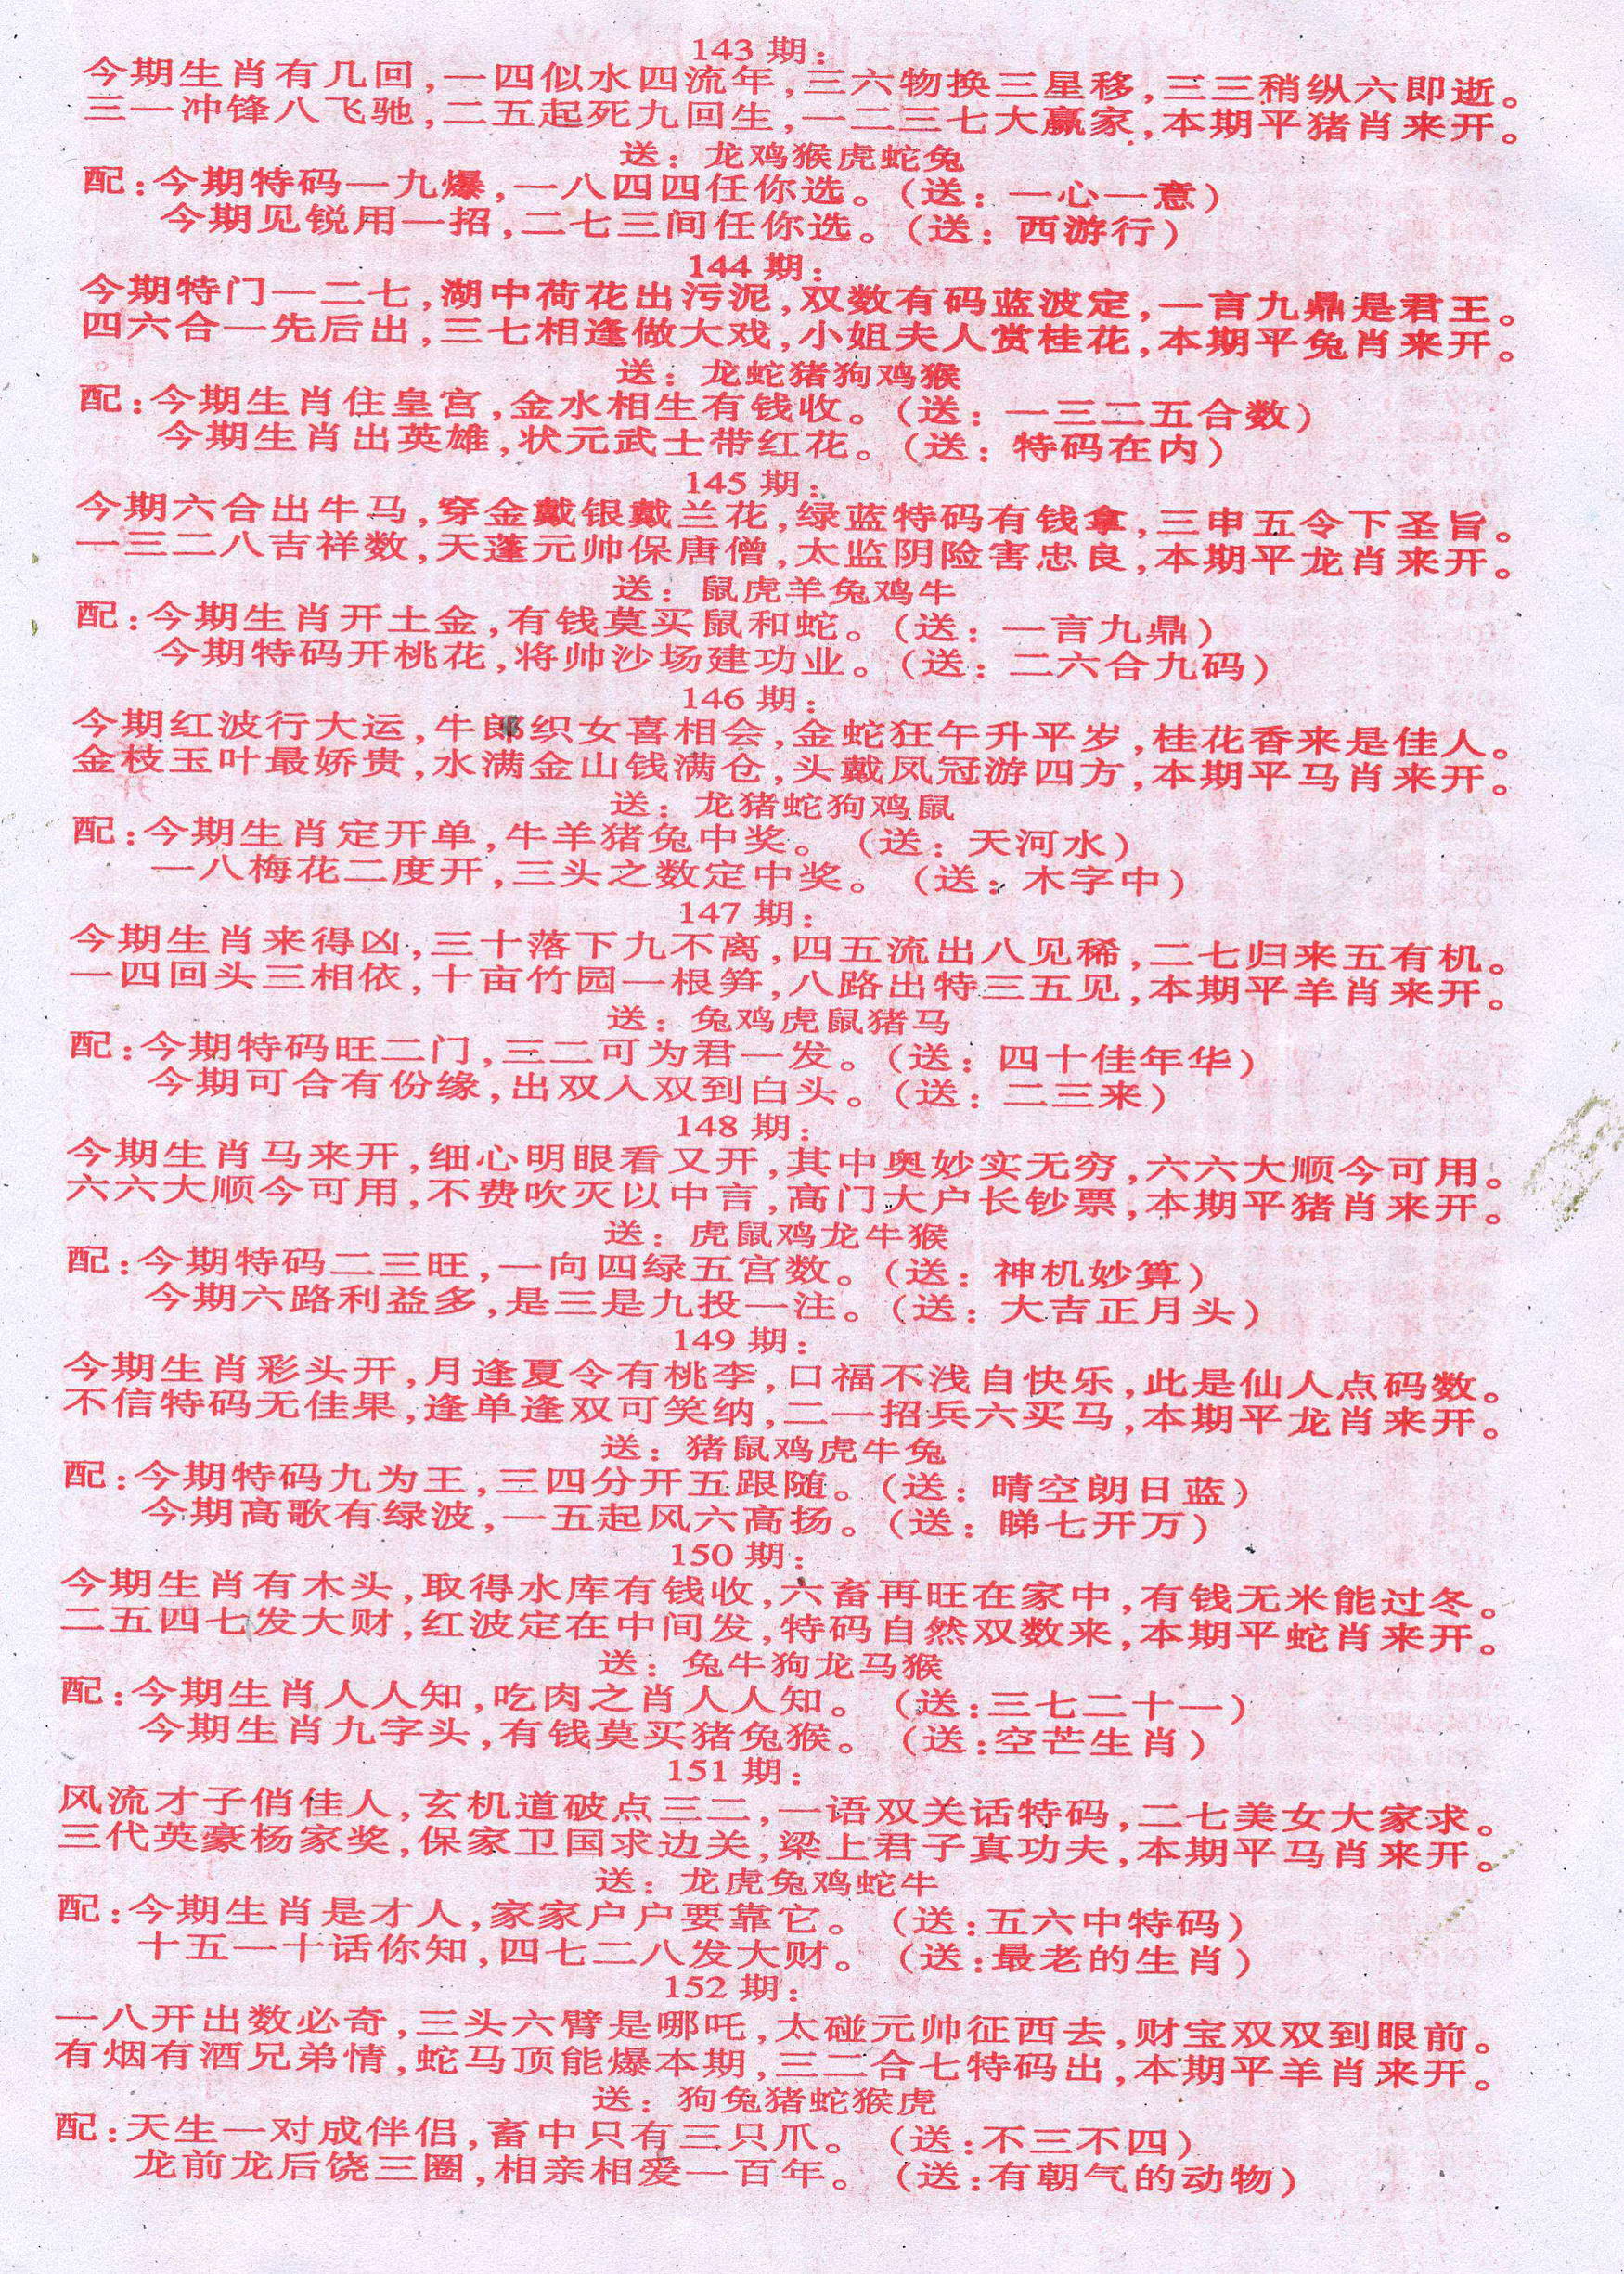 143 期：
今期生肖有几回，一四似水四流年，三六物换三星移，三三稍纵六即逝。
三一冲锋八飞驰，二五起死九回生，一二三七大赢家，本期平猪肖来开。
送：龙鸡猴虎蛇兔
配：今期特码一九爆，一八四四任你选。（送：一心一意）
今期见锐用一招，二七三间任你选。（送：西游行）
144 期：
今期特门一二七，湖中荷花出污泥，双数有码蓝波定，一言九鼎是君王。
四六合一先后出，三七相逢做大戏，小姐夫人赏桂花，本期平兔肖来开。
送：龙蛇猪狗鸡猴
配：今期生肖住皇宫，金水相生有钱收。（送：一三二五合数）
今期生肖出英雄，状元武士带红花。（送：特码在内）
145 期：
今期六合出牛马，穿金戴银戴兰花，绿蓝特码有钱拿，三申五令下圣旨。
一三二八吉祥数，天蓬元帅保唐僧，太监阴险害忠良，本期平龙肖来开。
送：鼠虎羊兔鸡牛
配：今期生肖开土金，有钱莫买鼠和蛇。（送：一言九鼎）
今期特码开桃花，将帅沙场建功业。（送：二六合九码）
146 期：
今期红波行大运，牛郎织女喜相会，金蛇狂午升平岁，桂花香来是佳人。
金枝玉叶最娇贵，水满金山钱满仓，头戴凤冠游四方，本期平马肖来开。
送：龙猪蛇狗鸡鼠
配：今期生肖定开单，牛羊猪兔中奖。（送：天河水）
一八梅花二度开，三头之数定中奖。（送：木字中）
147 期：
今期生肖来得凶，三十落下九不离，四五流出八见稀，二七归来五有机。
一四回头三相依，十亩竹园一根笋，八路出特三五见，本期平羊肖来开。
送：兔鸡虎鼠猪马
配：今期特码旺二门，三二可为君一发。（送：四十佳年华）
今期可合有份缘，出双人双到白头。（送：二三来）
148 期：
今期生肖马来开，细心明眼看又开，其中奥妙实无穷，六六大顺今可用。
六六大顺今可用，不费吹灭以中言，高门大户长钞票，本期平猪肖来开。
送：虎鼠鸡龙牛猴
配：今期特码二三旺，一向四绿五宫数。（送：神机妙算）
今期六路利益多，是三是九投一注。（送：大吉正月头）
149 期：
今期生肖彩头开，月逢夏令有桃李，口福不浅自快乐，此是仙人点码数。
不信特码无佳果，逢单逢双可笑纳，二一招兵六买马，本期平龙肖来开。
送：猪鼠鸡虎牛兔
配：今期特码九为王，三四分开五跟随。（送：晴空朗日蓝）
今期高歌有绿波，一五起风六高扬。（送：睇七开万）
150 期：
今期生肖有木头，取得水库有钱收，六畜再旺在家中，有钱无米能过冬。
二五四七发大财，红波定在中间发，特码自然双数来，本期平蛇肖来开。
送：兔牛狗龙马猴
配：今期生肖人人知，吃肉之肖人人知。（送：三七二十一）
今期生肖九字头，有钱莫买猪兔猴。（送：空芒生肖）
151 期：
风流才子俏佳人，玄机道破点三二，一语双关话特码，二七美女大家求。
三代英豪杨家奖，保家卫国求边关，梁上君子真功夫，本期平马肖来开。
送：龙虎兔鸡蛇牛
配：今期生肖是才人，家家户户要靠它。（送：五六中特码）
十五一十话你知，四七二八发大财。（送：最老的生肖）
152 期：
一八开出数必奇，三头六臂是哪吒，太碰元帅征西去，财宝双双到眼前。
有烟有酒兄弟情，蛇马顶能爆本期，三二合七特码出，本期平羊肖来开。
送：狗兔猪蛇猴虎
配：天生一对成伴侣，畜中只有三只爪。（送：不三不四）
龙前龙后饶三圈，相亲相爱一百年。（送：有朝气的动物）